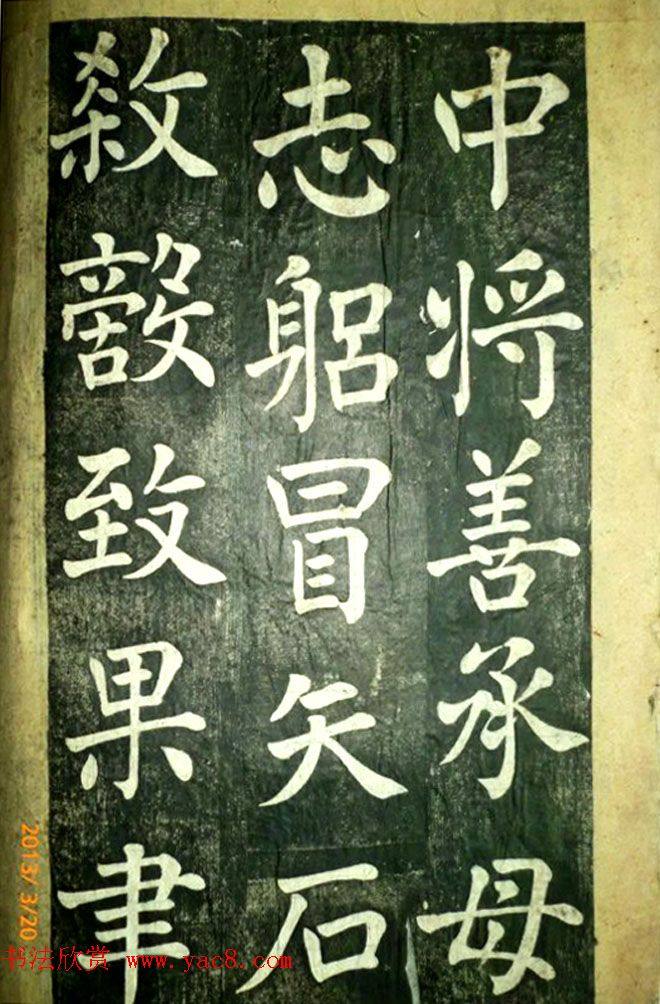 中将善承母
志躳冒矢石
殺敵致果聿
2013/ 3/20
书法欣赏 www.yac8.com